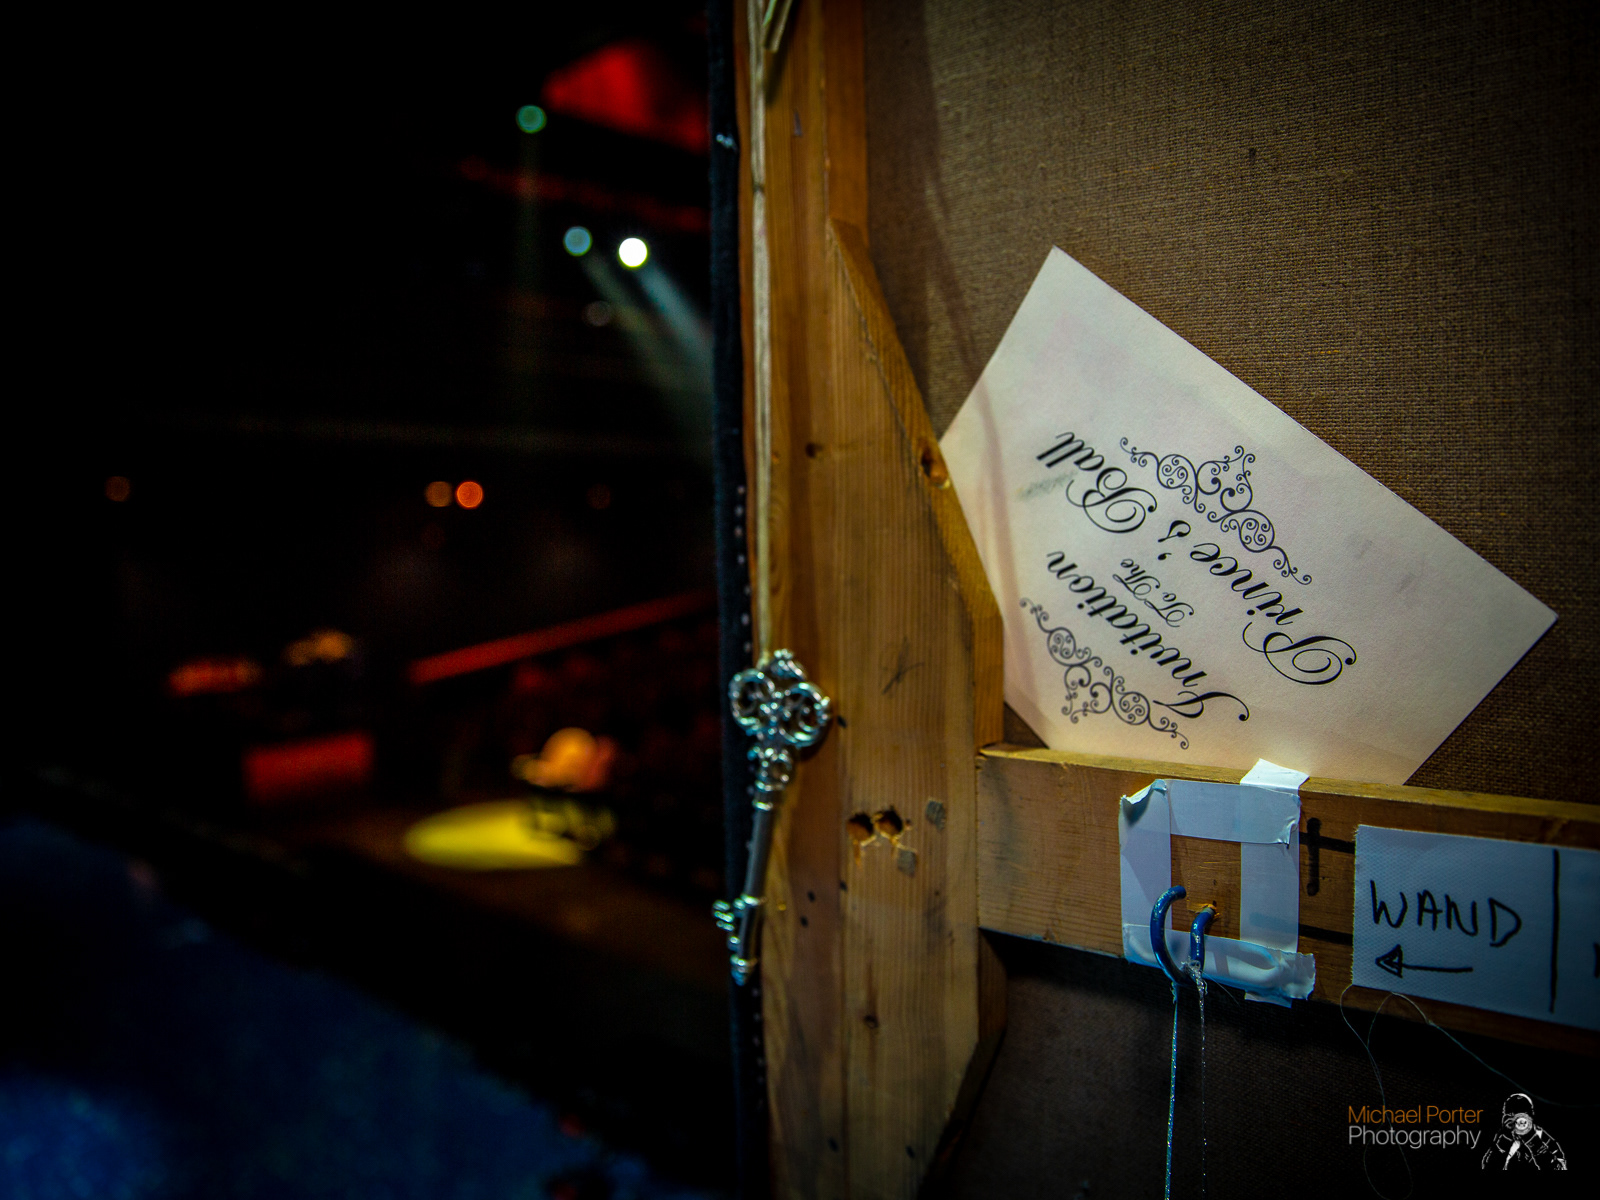 Invitation
To The
Prince's Ball
WAND
Michael Porter
Photography